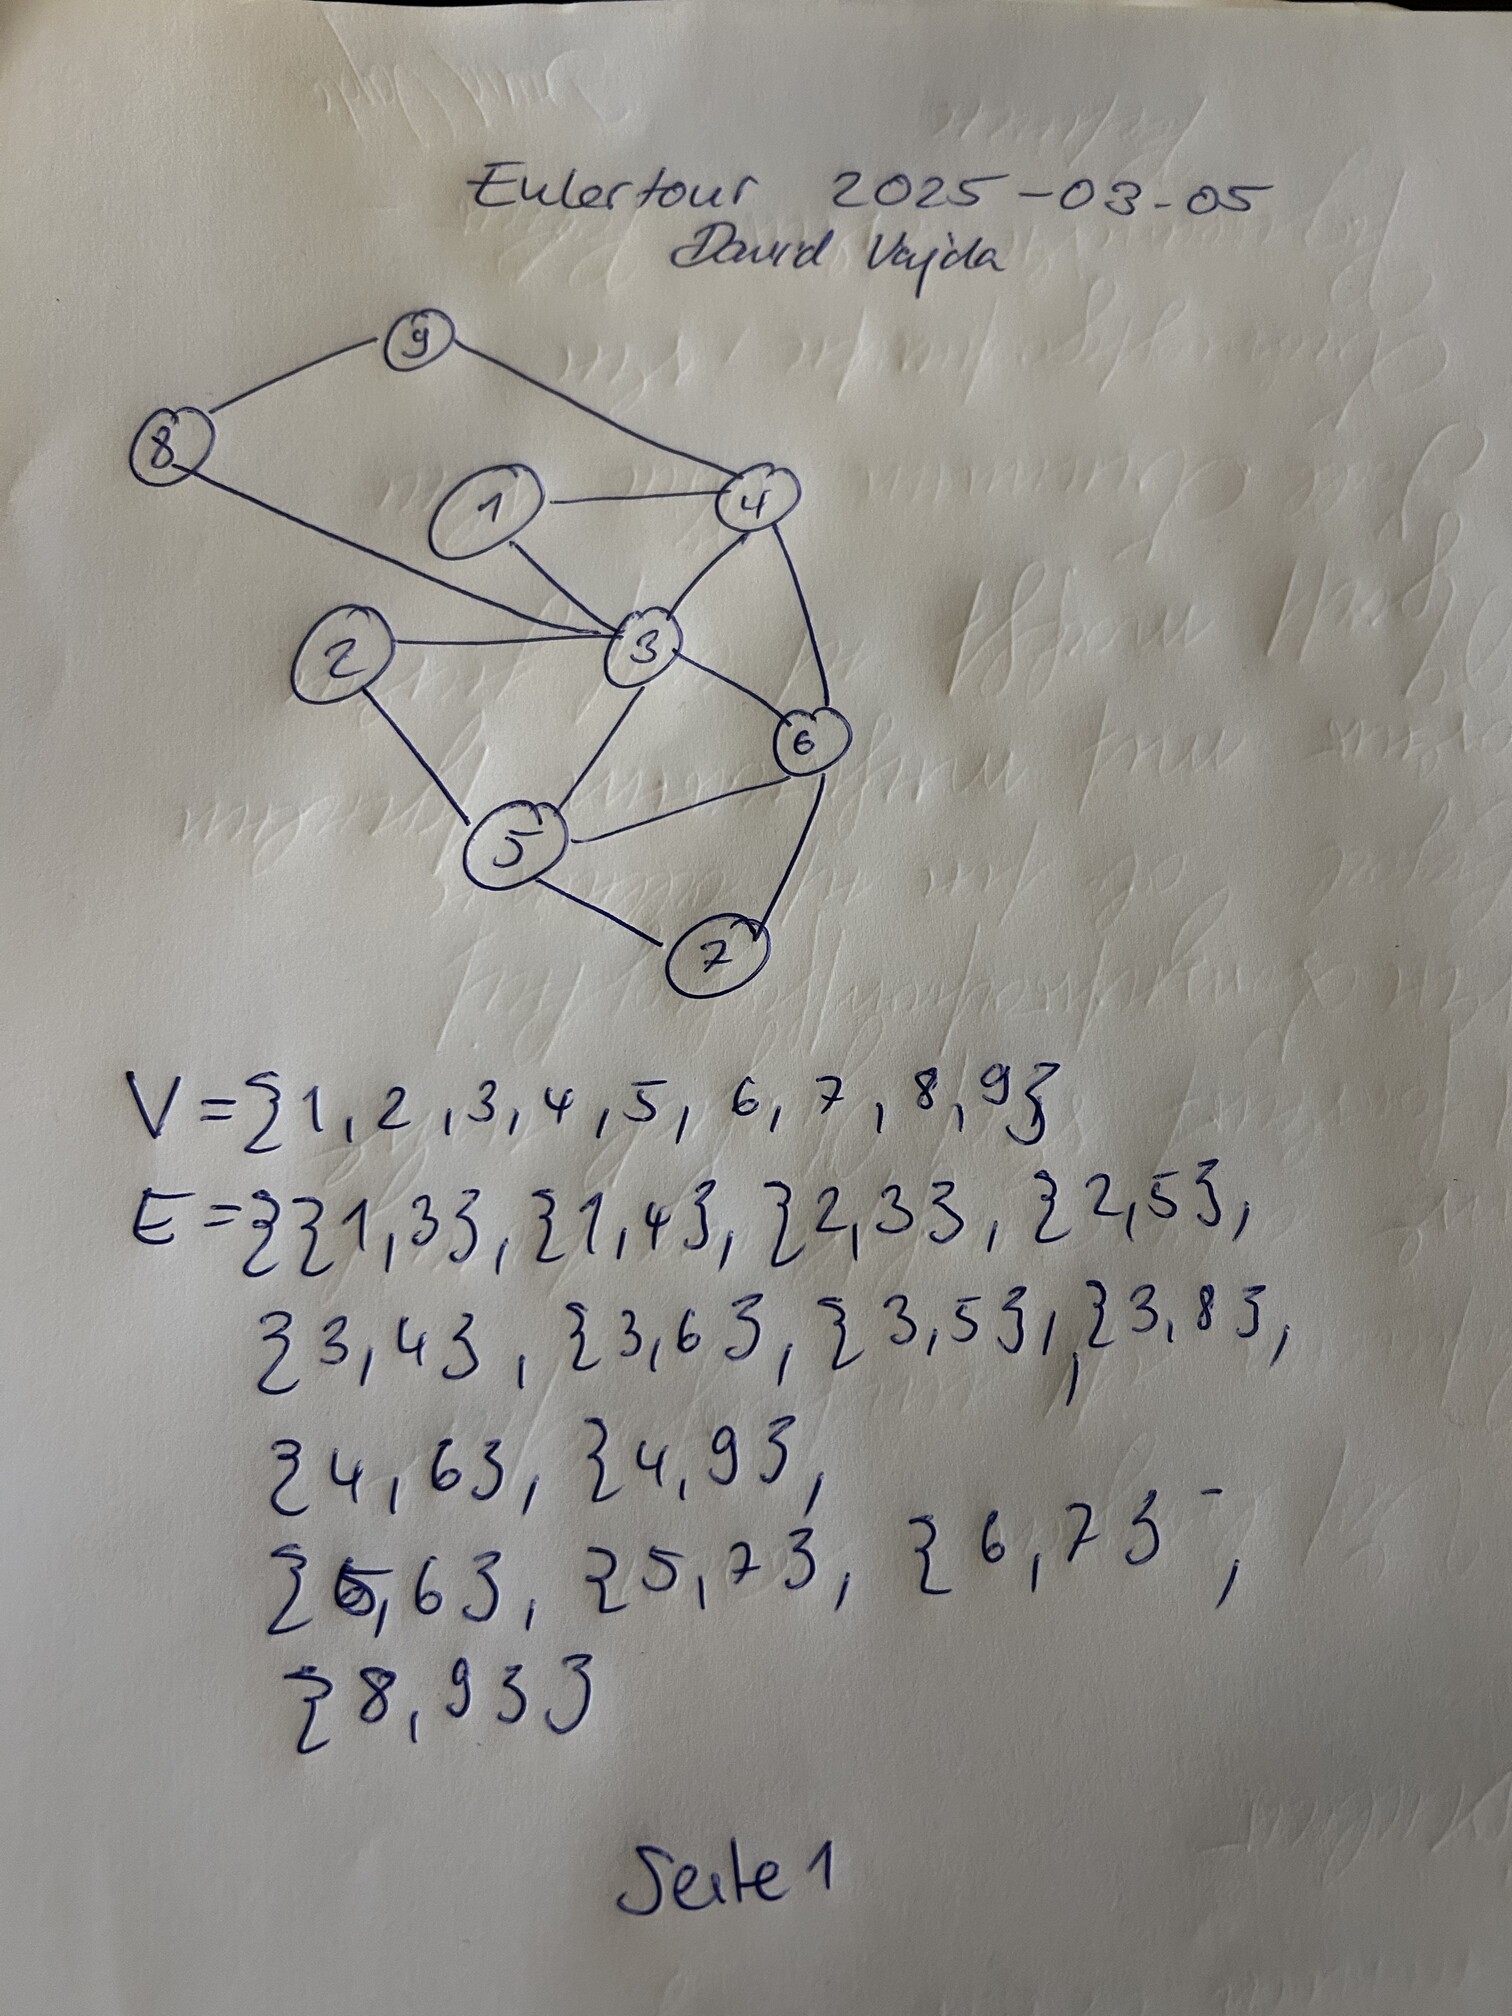 Eulertour 2025-03-05
David Vajda
9
8
1
4
2
3
6
5
7
V={1,2,3,4,5,6,7,8,9}
E={{1,3},{1,4},{2,3},{2,5},
{3,4},{3,6},{3,5},,{3,8},
{4,6},{4,9},
{5,6},{5,7},{6,7}-,
{8,9}}
Seite 1